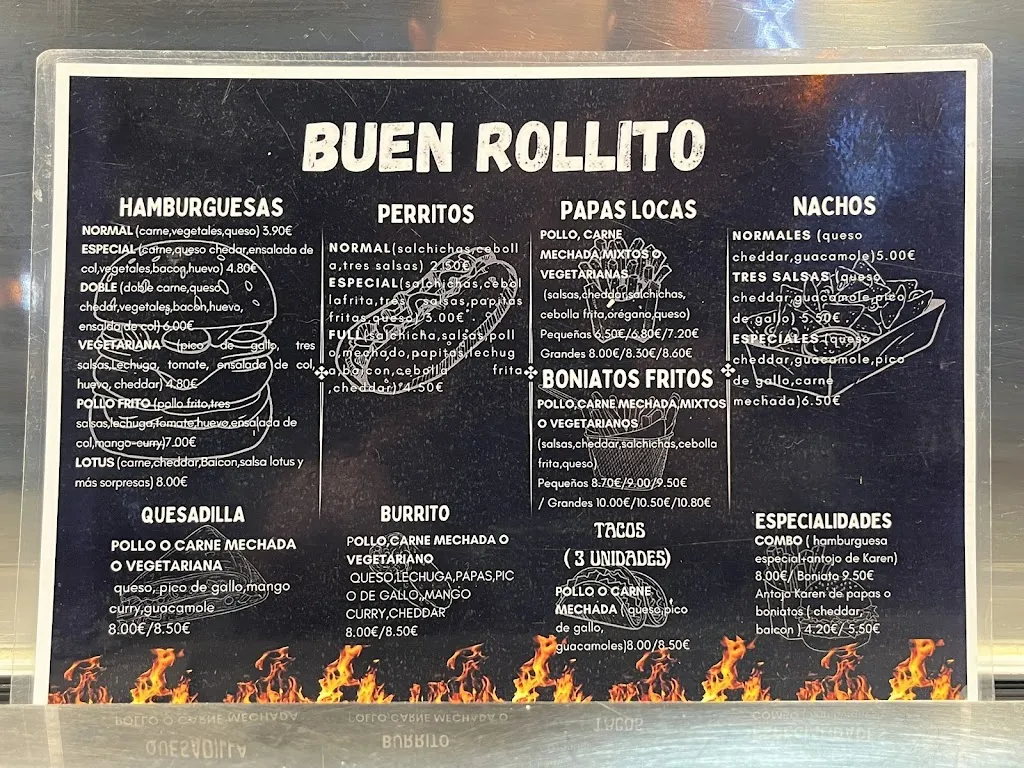 BUEN ROLLITO
HAMBURGUESAS
NORMAL (carne,vegetales,queso) 3.90€
ESPECIAL (carne,queso chedar,ensalada de
col,vegetales,bacon,huevo) 4.80€
DOBLE (doble carne,queso
chedar,vegetales,bacon,huevo,
ensalada de col) 6.00€
VEGETARIANA (pico de gallo, tres
salsas,Lechuga, tomate, ensalada de col,
huevo, cheddar) 4.80€
POLLO FRITO (pollo frito,tres
salsas,lechuga,tomate,huevo,ensalada de
col,mango-curry)7.00€
LOTUS (carne,cheddar,Baicon,salsa lotus y
más sorpresas) 8.00€
PERRITOS
NORMAL(salchichas,ceboll
a,tres salsas) 2.50€
ESPECIAL(salchichas,cebol
lafrita,tres salsas,papitas
fritas,queso) 3.00€
FULL(salchicha,salsas,poll
o mechado,papitas,lechug
a,baicon,cebolla frita
,cheddar) 4.50€
PAPAS LOCAS
POLLO, CARNE
MECHADA,MIXTOS O
VEGETARIANAS
(salsas,cheddar,salchichas,
cebolla frita,orégano,queso)
Pequeñas 6.50€/6.80€/7.20€
Grandes 8.00€/8.30€/8.60€
BONIATOS FRITOS
POLLO,CARNE MECHADA,MIXTOS
O VEGETARIANOS
(salsas,cheddar,salchichas,cebolla
frita,queso)
Pequeñas 8.70€/9.00/9.50€
/ Grandes 10.00€/10.50€/10.80€
NACHOS
NORMALES (queso
cheddar,guacamole)5.00€
TRES SALSAS (queso
cheddar,guacamole,pico
de gallo) 5.50€
ESPECIALES (queso
cheddar,guacamole,pico
de gallo,carne
mechada)6.50€
QUESADILLA
POLLO O CARNE MECHADA
O VEGETARIANA
queso, pico de gallo,mango
curry,guacamole
8.00€/8.50€
BURRITO
POLLO,CARNE MECHADA O
VEGETARIANO
QUESO,LECHUGA,PAPAS,PIC
O DE GALLO,MANGO
CURRY,CHEDDAR
8.00€/8.50€
TACOS
( 3 UNIDADES)
POLLO O CARNE
MECHADA (queso,pico
de gallo,
guacamoles)8.00/8.50€
ESPECIALIDADES
COMBO ( hamburguesa
especial+antojo de Karen)
8.00€/ Boniato 9.50€
Antojo Karen de papas o
boniatos ( cheddar,
baicon ) 4.20€/ 5,50€